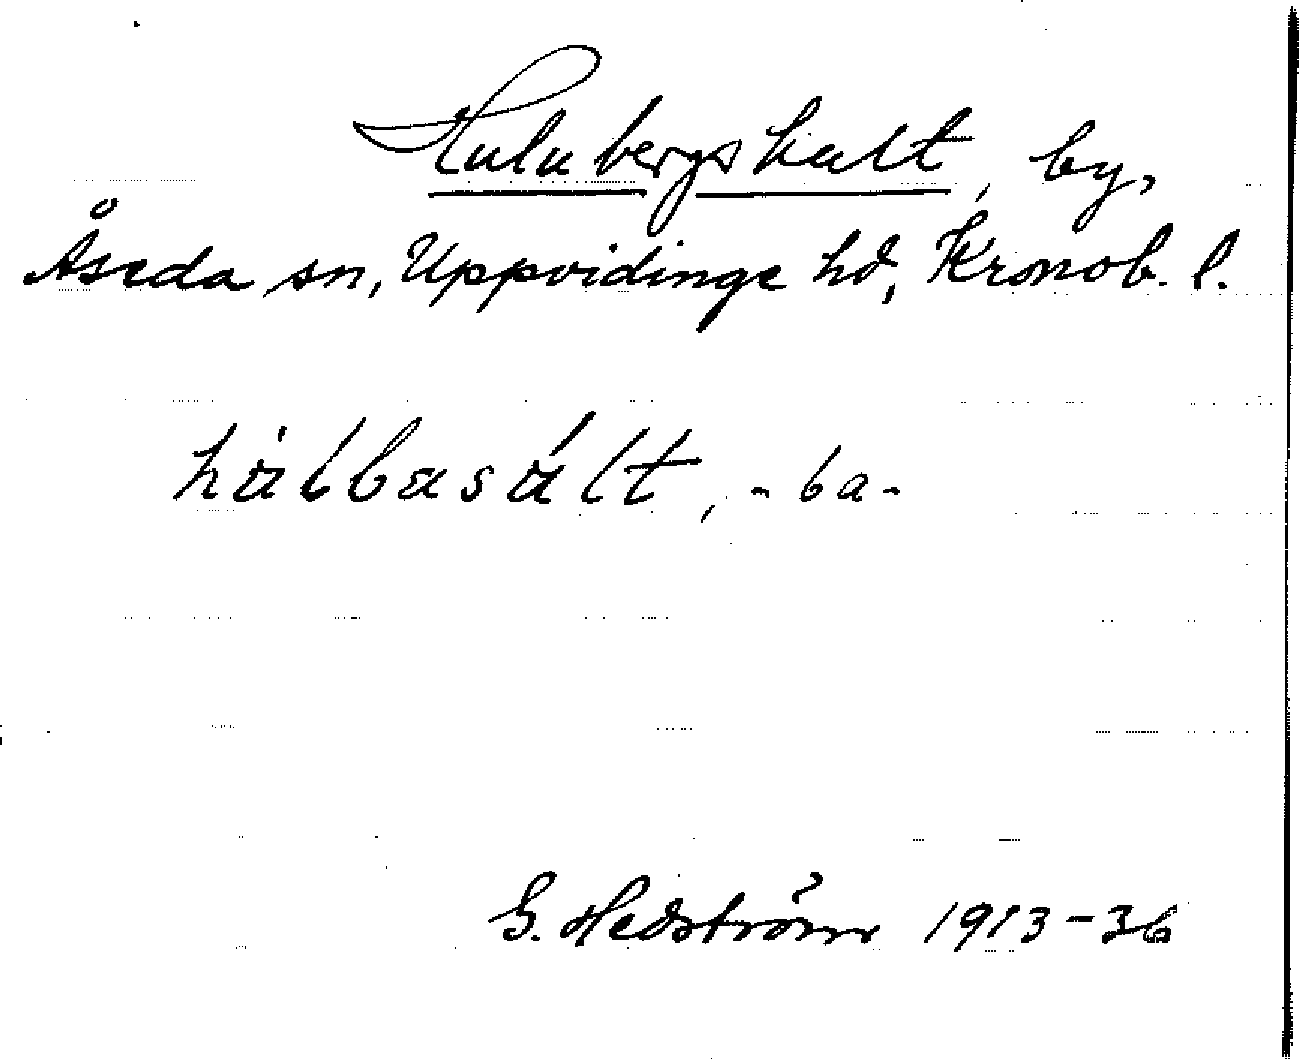 Hulubergshalt, by,
Åseda sn, Uppvidinge hd, Kronob. l.
hålbasált, -ba-
G. Hedström 1913-36